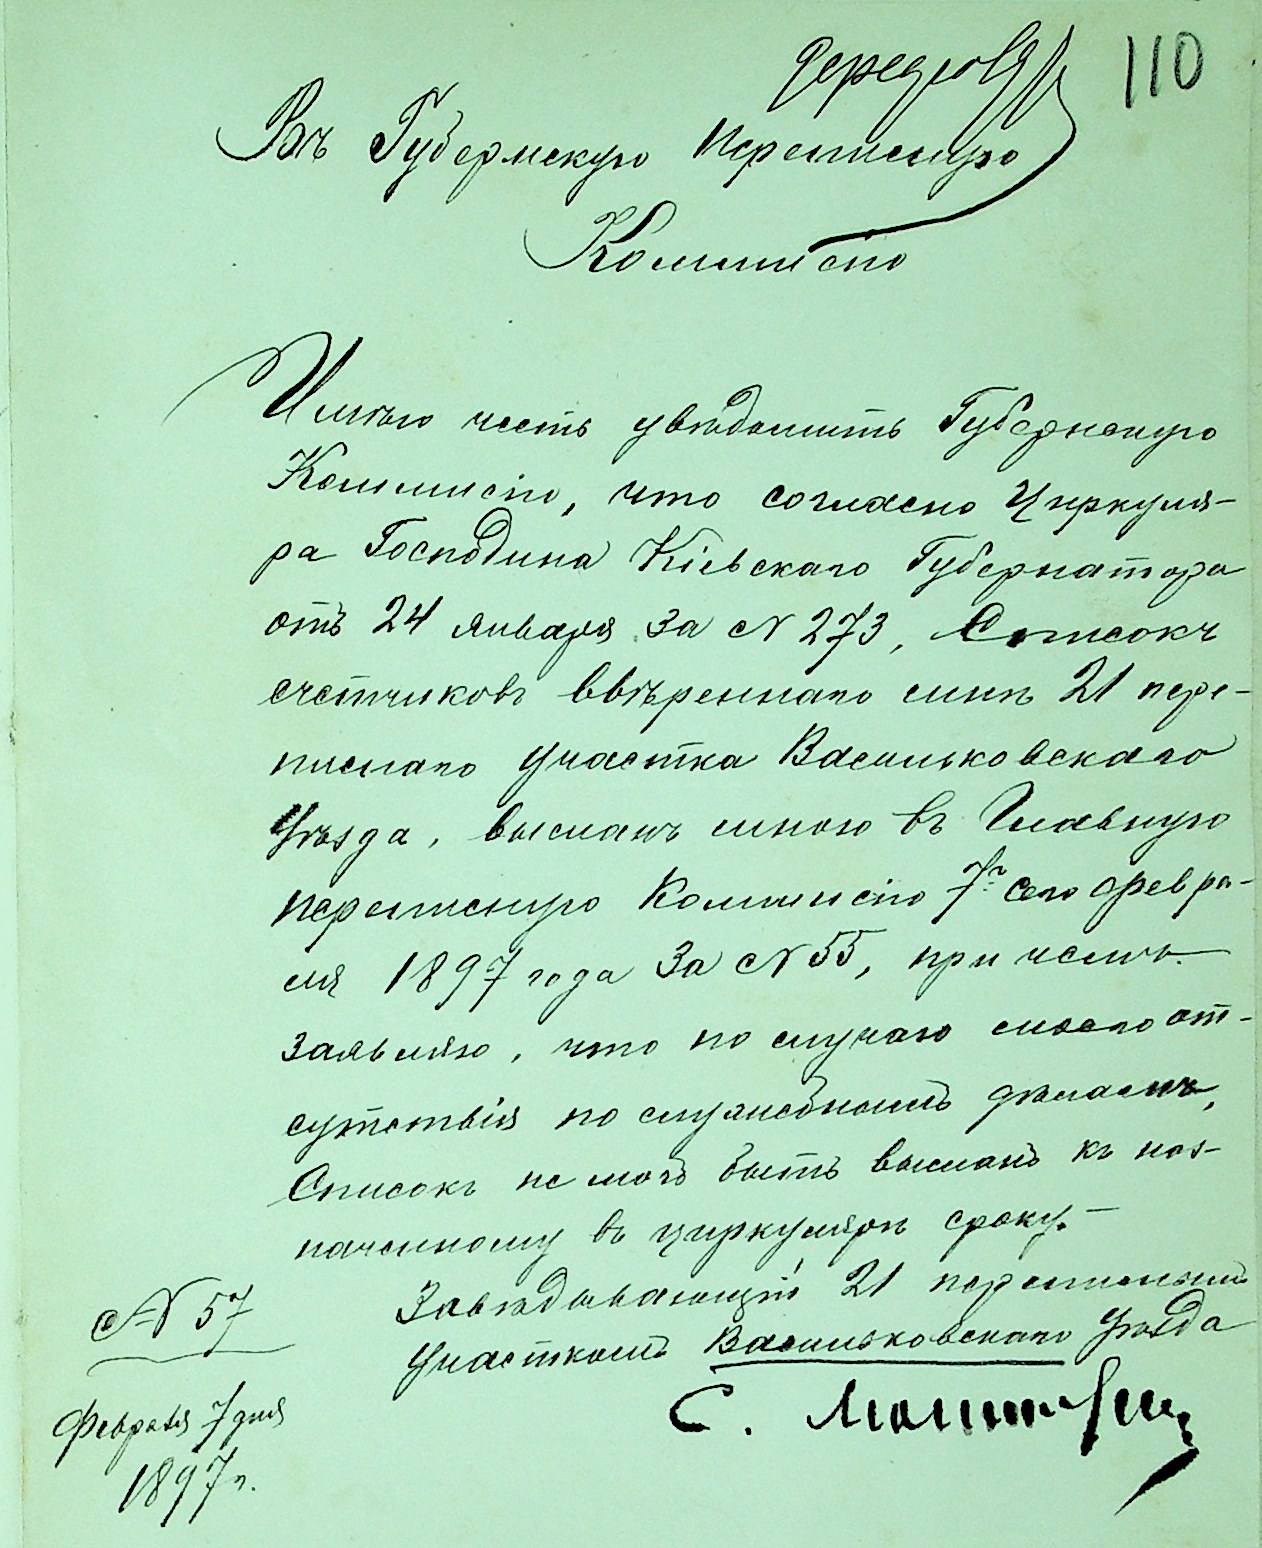 110
Въ Губернскую Переписную
Коммисію
Имѣю честь увѣдомить Губернскую
Коммисію, что согласно Циркуля-
ра Господина Кіевскаго Губернатора
отъ 24 января за № 273, Списокъ
счетчиковъ ввѣреннаго мнѣ 21 пере-
писнаго участка Васильковскаго
Уѣзда, высланъ мною въ Главную
Переписную Коммисію 7го сего февра-
ля 1897 года за № 55, при чемъ
заявляю, что по случаю моего от-
сутствія по служебнымъ дѣламъ,
Списокъ не могъ быть высланъ къ наз-
наченному въ циркулярѣ сроку.-
Завѣдывающій 21 переписнымъ
Участкомъ Васильковскаго Уѣзда
С.
№ 57
Февраля 7 дня
1897 г.